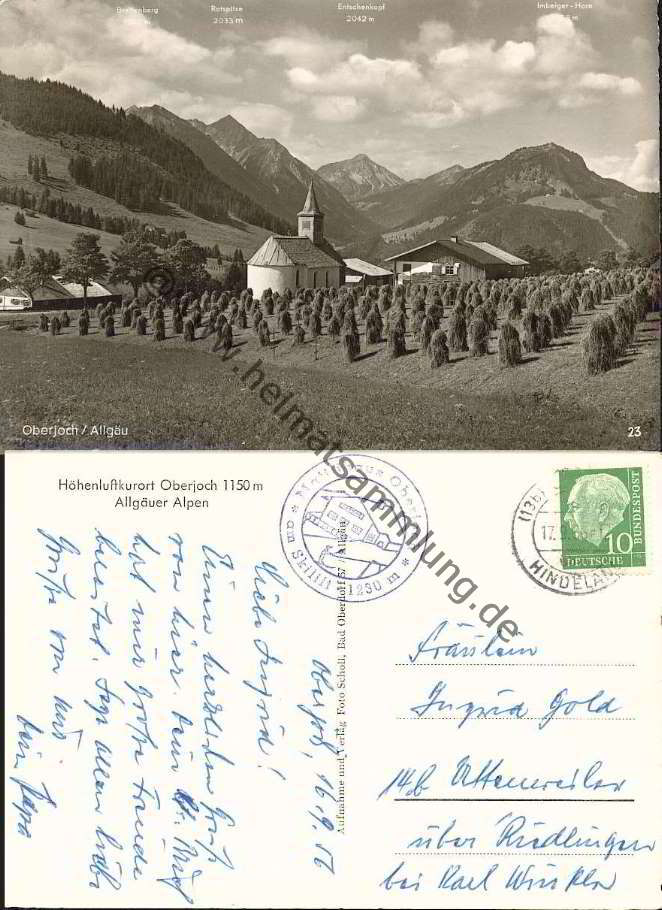 Breitenberg
Rotspitze
2033 m
Entschenkopf
2042 m
Imberger-Horn
Oberjoch / Allgäu
23
www.heimatsammlung.de
Höhenluftkurort Oberjoch 1150 m
Allgäuer Alpen
am Skilift
1230 m
(13b)
17.
HINDELAN
10
DEUTSCHE
BUNDESPOST
Aufnahme und Verlag Foto Scholl, Bad Oberdorf 57 / Allgäu
Oberjoch, 16.9.56
Liebe Ingrid!
Einen herzlichen Gruß
von hier. Dein Brief
hat mir große Freude
bereitet. Sage allen liebe
Grüße von mir
Dein Papa
Fräulein
Ingrid Gold
14b Attenweiler
über Riedlingen
bei Karl Winkler